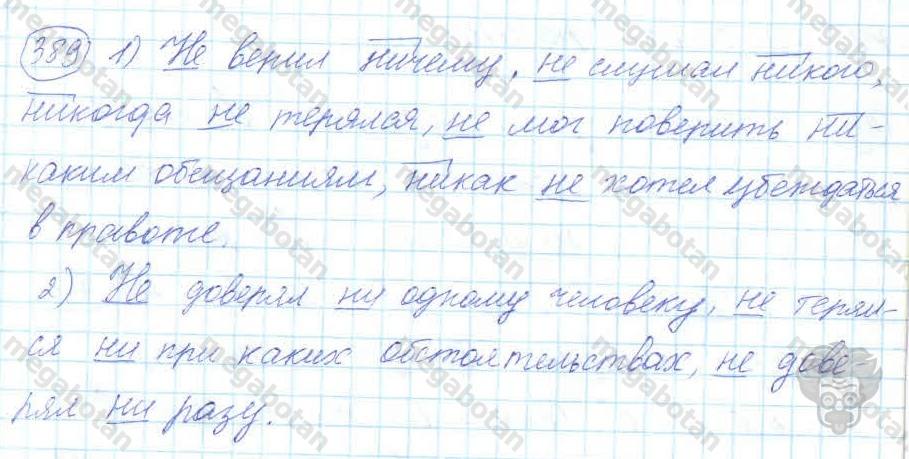 389 1) Не верил ничему, не слушал никого,
никогда не терялся, не мог поверить ни-
каким обещаниям, никак не хотел убеждаться
в правоте.
2) Не доверял ни одному человеку, не терял-
ся ни при каких обстоятельствах, не дове-
рял ни разу.
megabotan